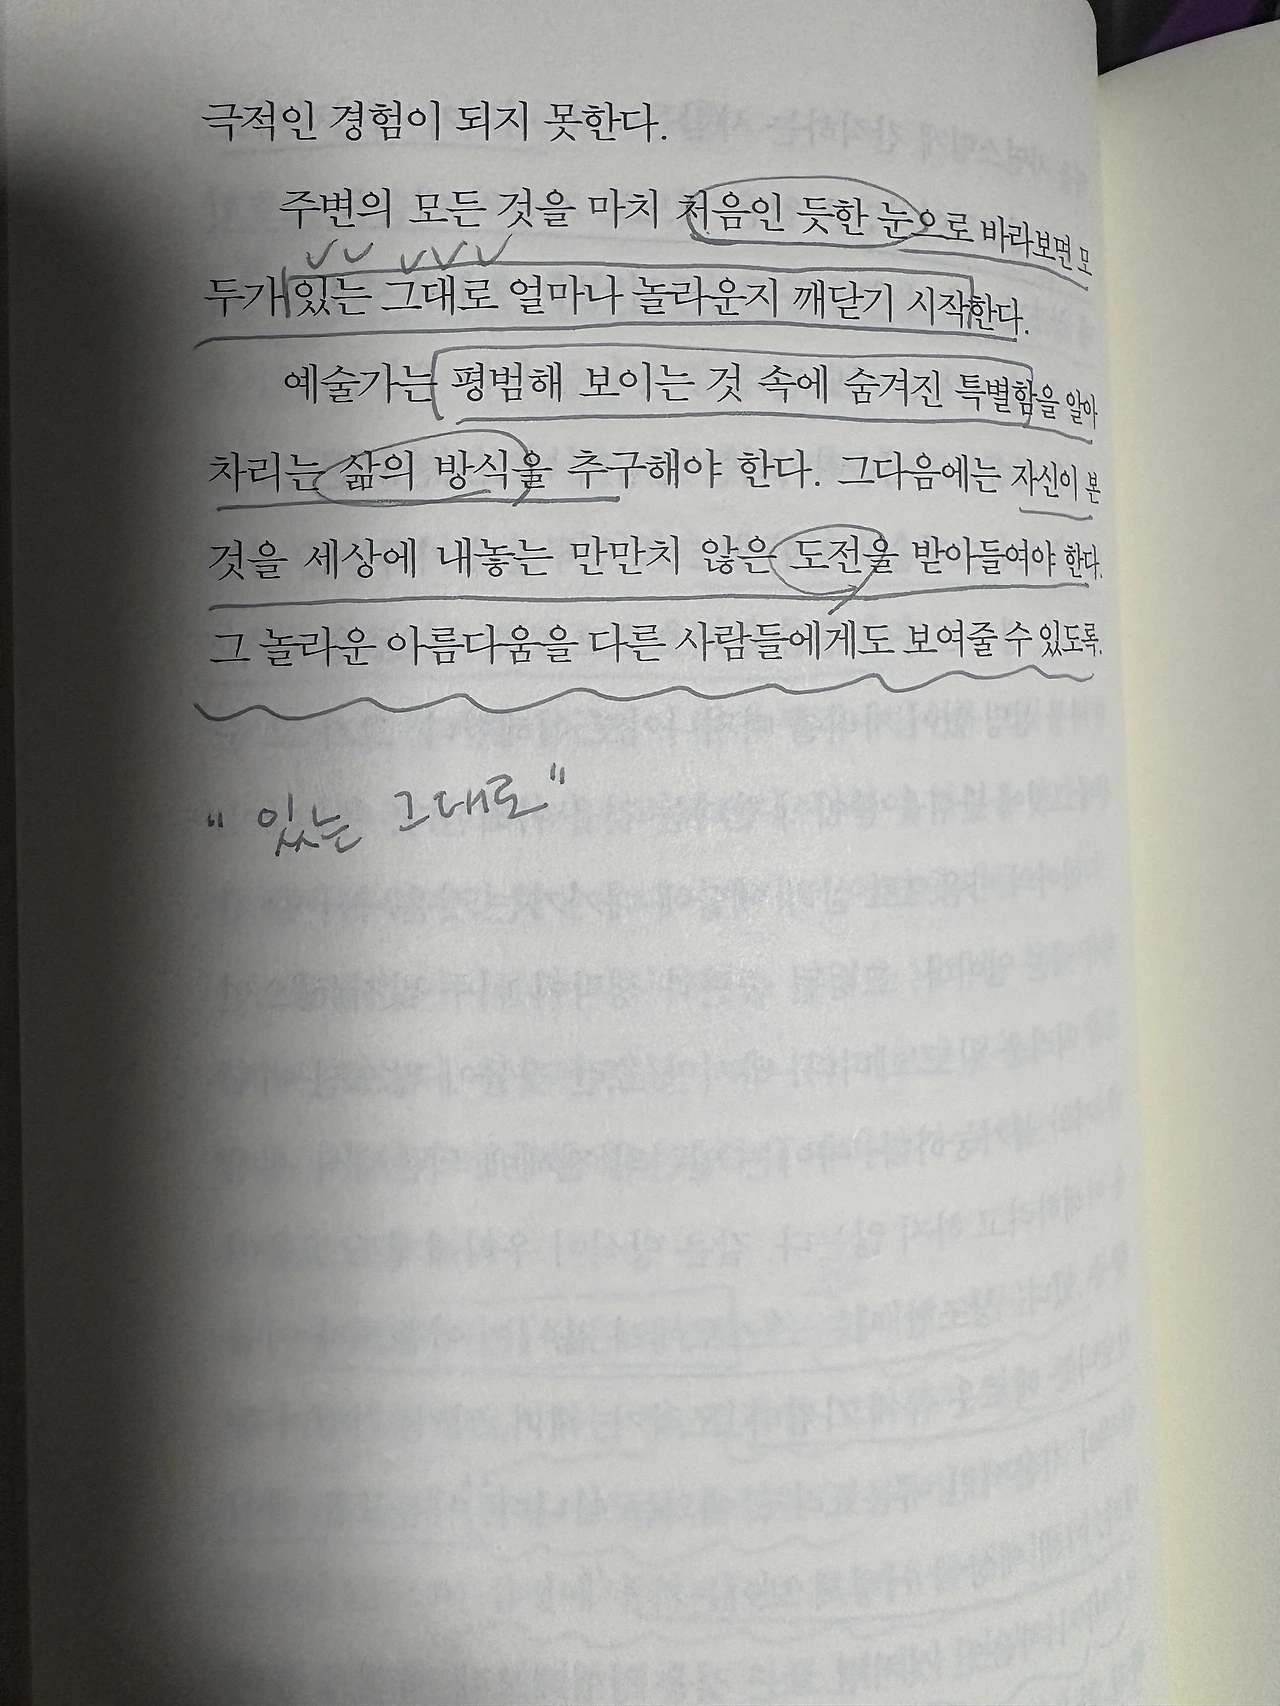 극적인 경험이 되지 못한다.
주변의 모든 것을 마치 처음인 듯한 눈으로 바라보면 모
두가 있는 그대로 얼마나 놀라운지 깨닫기 시작한다.
예술가는 평범해 보이는 것 속에 숨겨진 특별함을 알아
차리는 삶의 방식을 추구해야 한다. 그다음에는 자신이 본
것을 세상에 내놓는 만만치 않은 도전을 받아들여야 한다.
그 놀라운 아름다움을 다른 사람들에게도 보여줄 수 있도록.
" 있는 그대로"